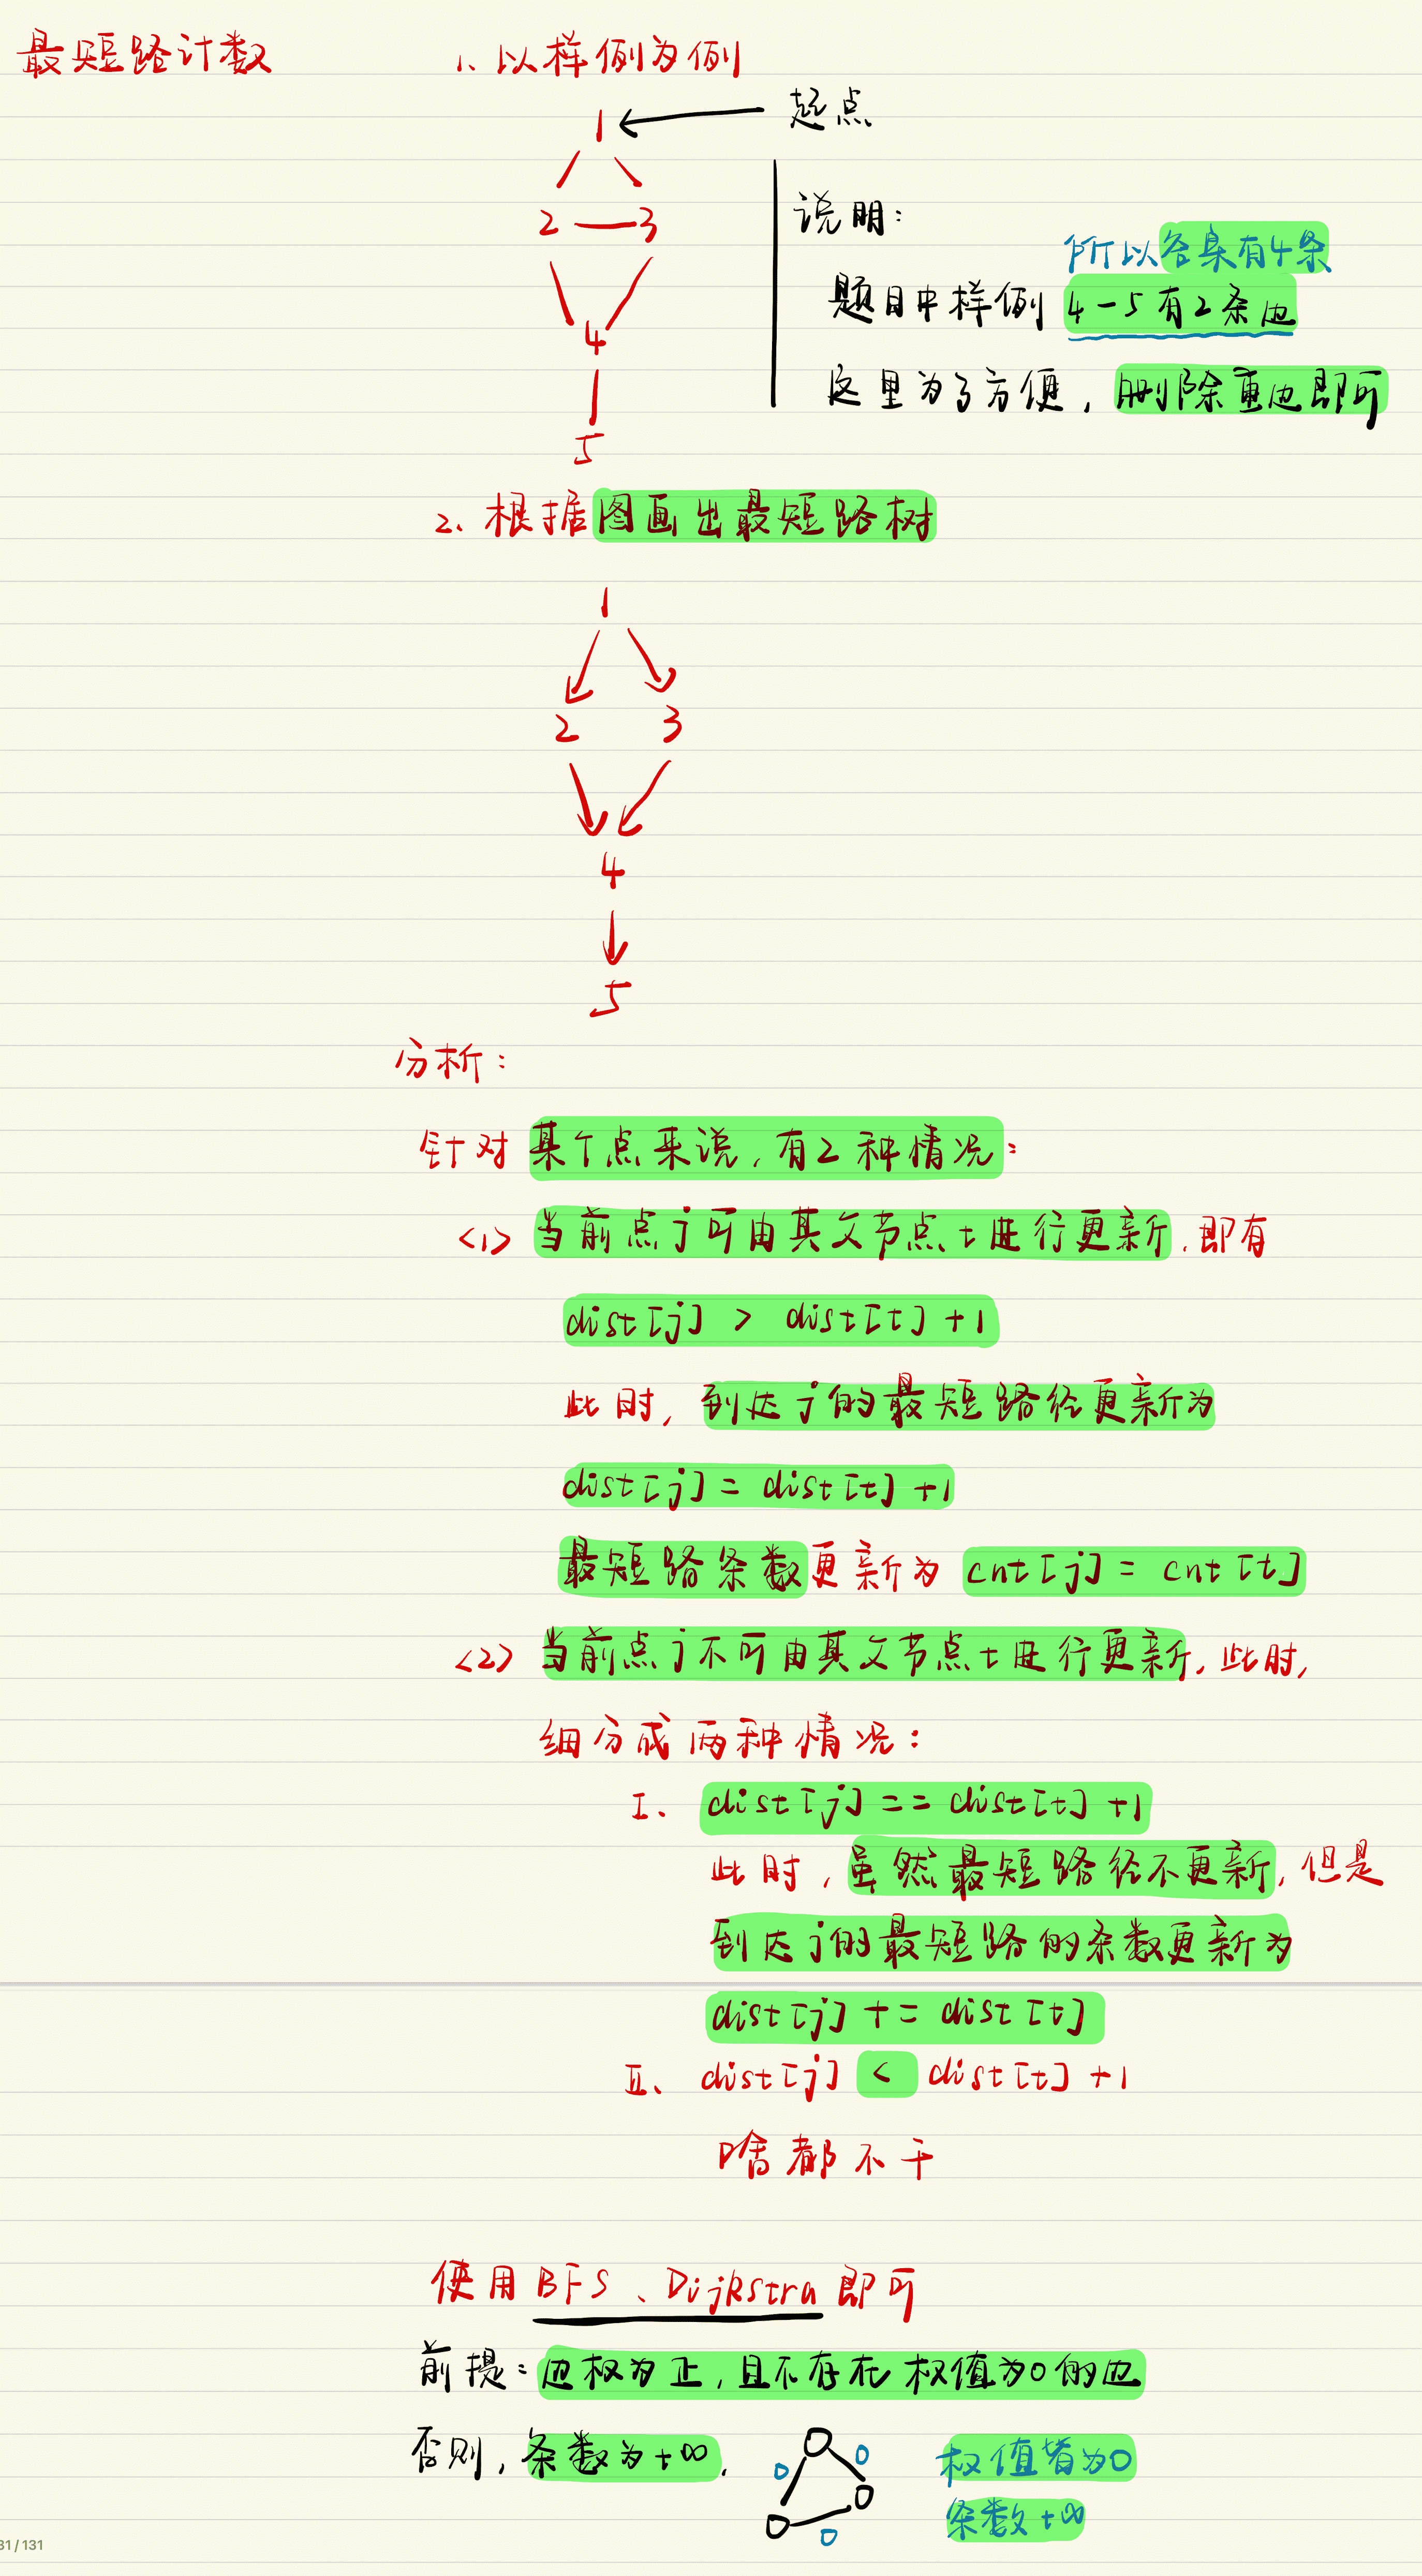 最短路计数
1、以样例为例
1
起点
2 3
4
5
说明:
所以答案有4条
题目中样例 4-5有2条边
这里为了方便, 删除重边即可
2、根据图画出最短路树
1
2 3
4
5
分析:
针对某个点来说,有2种情况:
<1> 当前点j可由其父节点t进行更新,即有
dist[j] > dist[t] +1
此时, 到达j的最短路径更新为
dist[j] = dist[t] +1
最短路条数更新为 cnt[j] = cnt[t]
<2> 当前点j不可由其父节点t进行更新, 此时,
细分成两种情况:
I、 dist[j] == dist[t] +1
此时, 虽然最短路径不更新, 但是
到达j的最短路的条数更新为
dist[j] += dist[t]
II、 dist[j] < dist[t] +1
啥都不干
使用BFS、Dijkstra即可
前提: 边权为正, 且不存在权值为0的边
否则, 条数为+∞.
0 0
0
权值皆为0
条数+∞
31 / 131